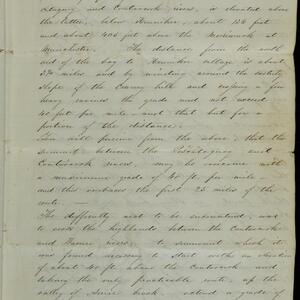 and Contoocook rivers, is situated above
the latter, below Henniker, about 136 feet
and about 405 feet above the Merrimack at
Manchester. The distance from the north
end of the bay to Henniker village is about
miles and by winding around the
slope of the hills and crossing a few
heavy ravines the grade need not exceed
40 feet per mile — and that but for a
portion of the distance.
You will perceive from the above, that the
summit between the Piscataquog and
Contoocook rivers, may be overcome with
a maximum grade of 40 ft. per mile —
and this embraces the first 25 miles of the
route. —
The difficulty next to be surmounted, was
to cross the highlands between the Contoocook
and rivers, to summit which it
was found necessary to start with an elevation
of about 40 feet above the Contoocook and
taking the only practicable route, up the
valley of brook, extend a grade of